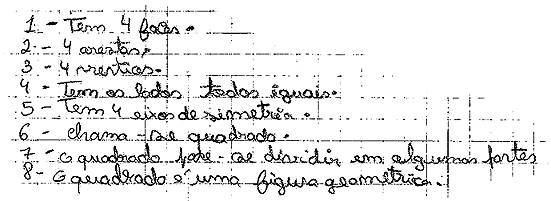 1 - Tem 4 faces.
2 - 4 arestas.
3 - 4 vertices.
4 - Tem os lados todos iguais.
5 - Tem 4 eixos de simetria.
6 - chama-se quadrado.
7 - O quadrado pode-se dividir em algumas partes
8 - O quadrado é uma figura geometrica.